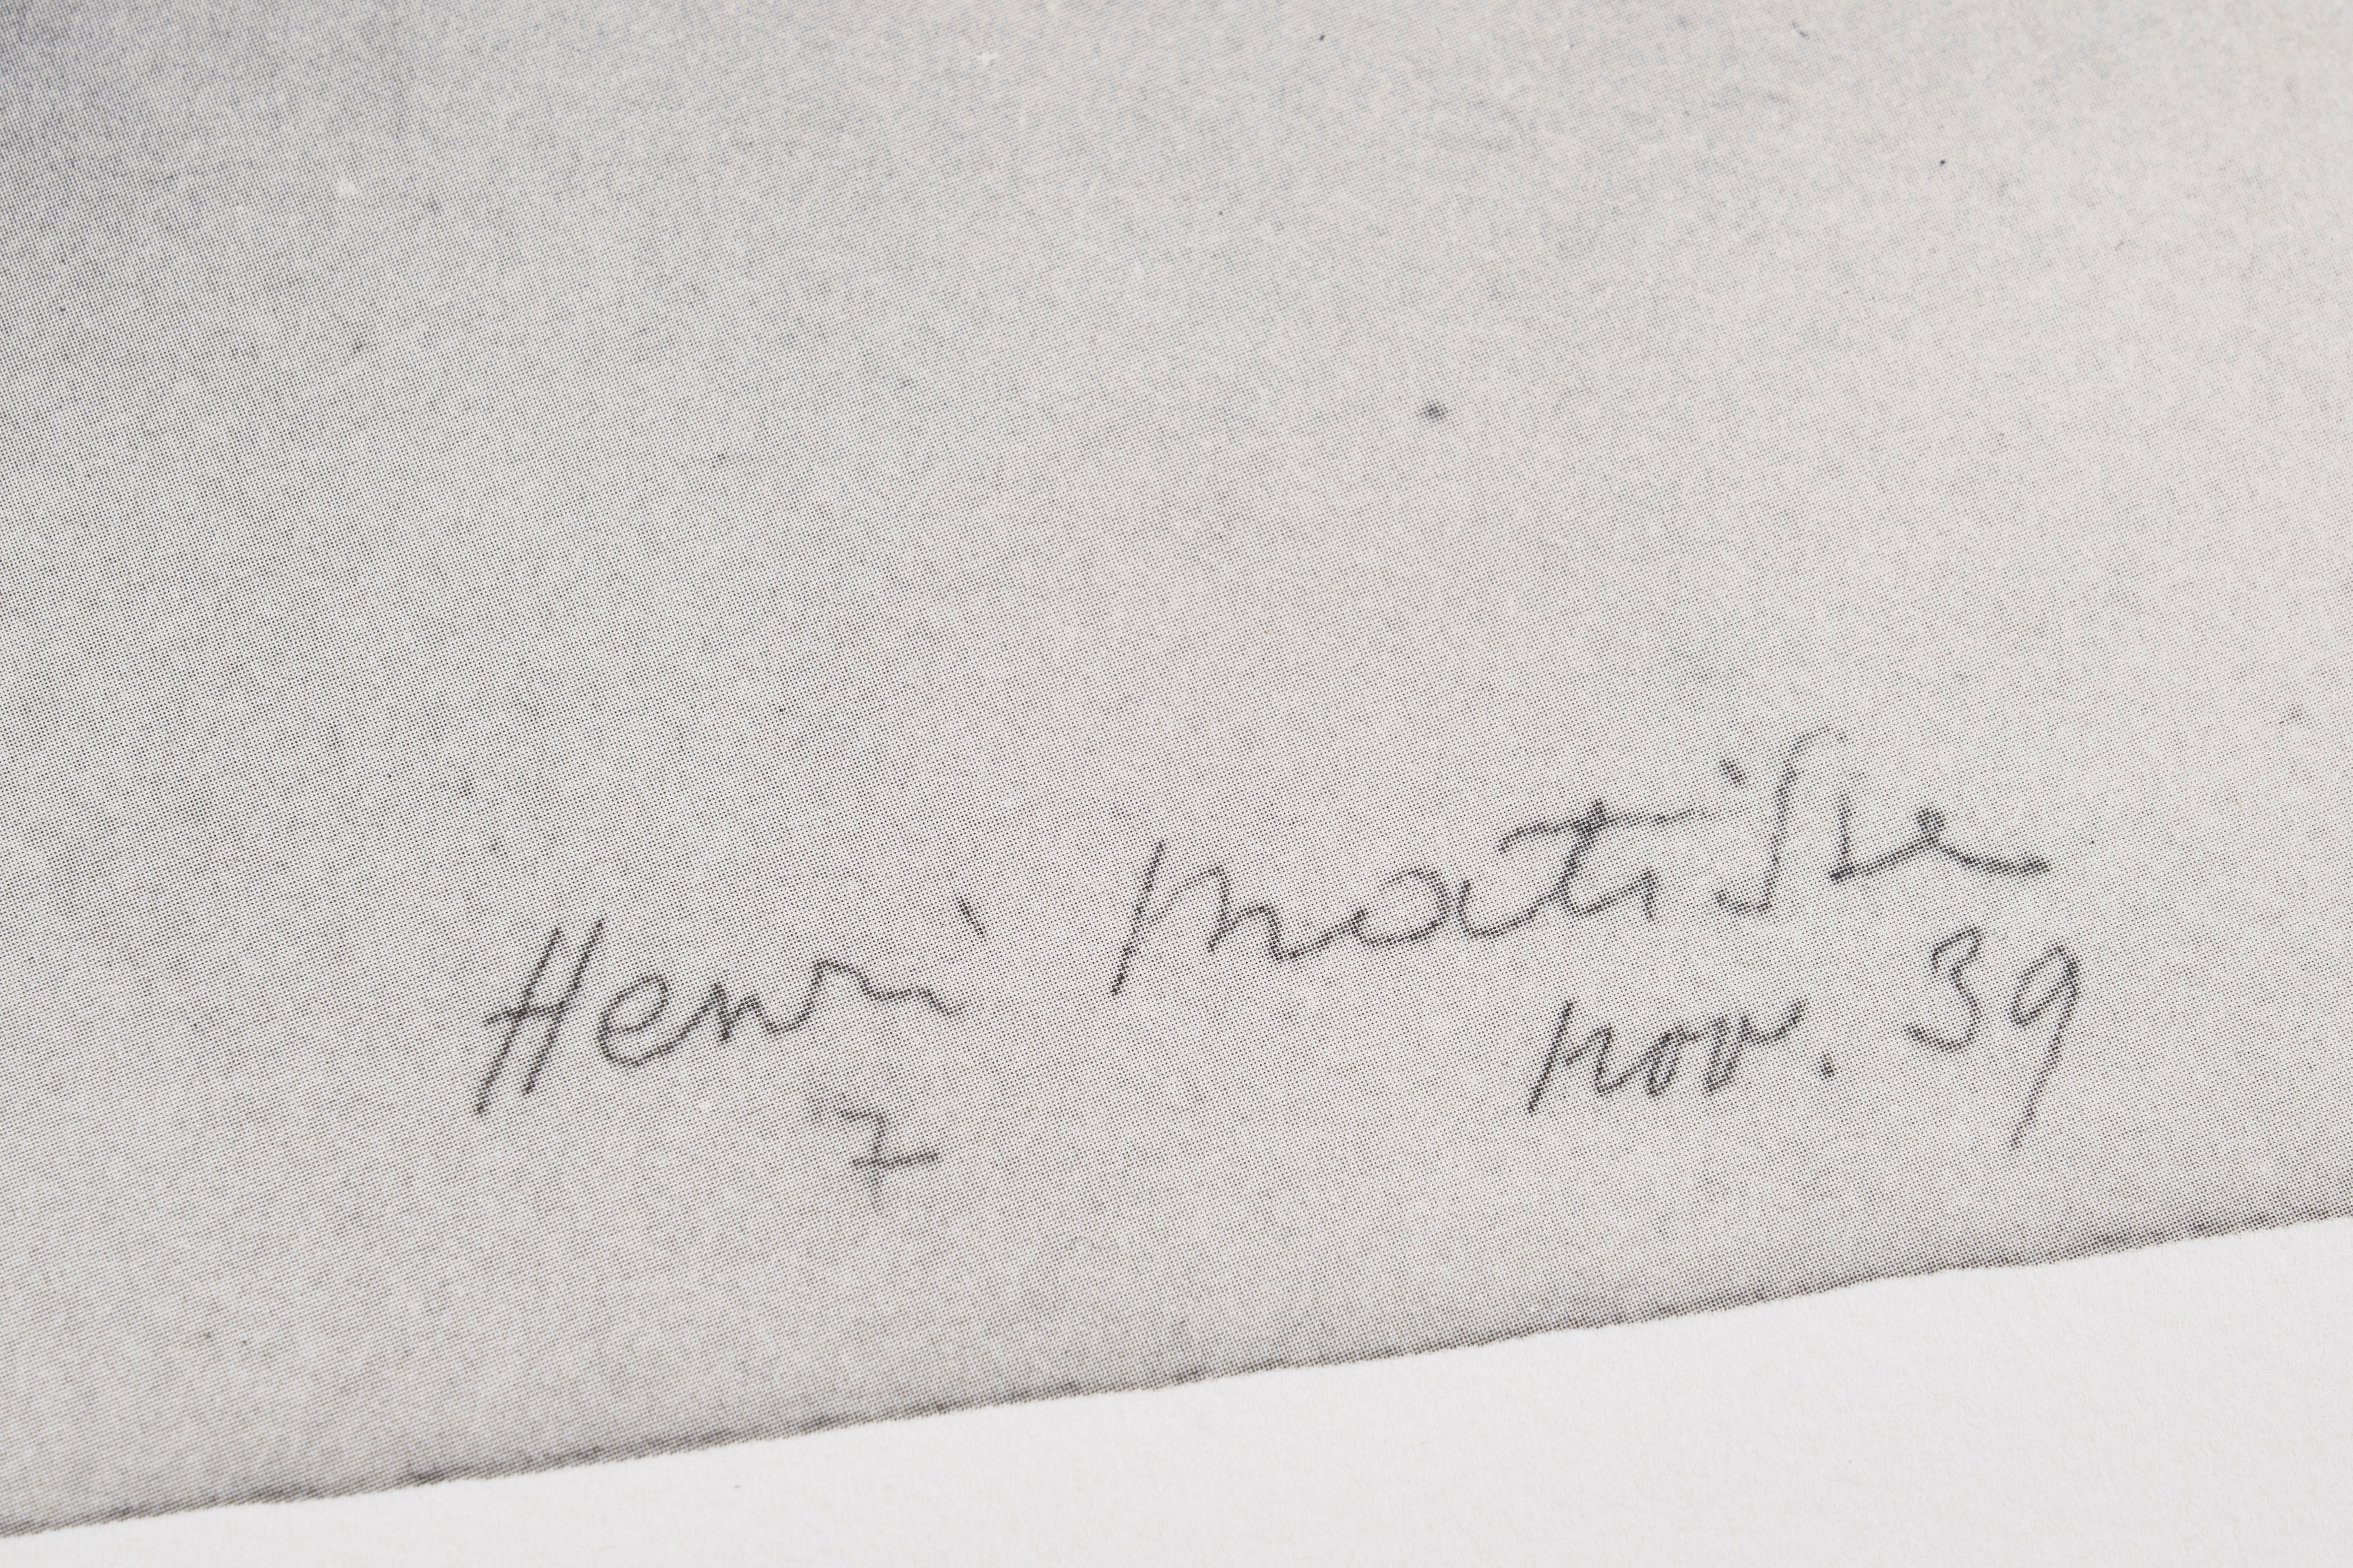 Henri Matisse
7 nov. 39